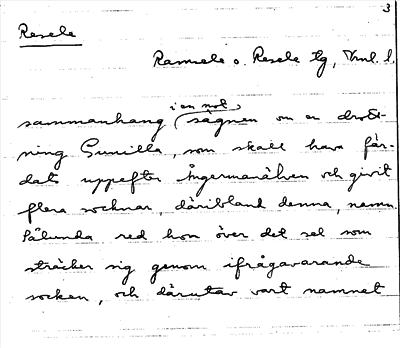 3
Resele
Ramsele o. Resele tg, Vnl. l.
i en not
sammanhang sägnen om en drott-
ning Gunilla, som skall hava fär-
dats uppefter Ångermanälven och givit
flera socknar, däribland denna, namn.
Sålunda red hon över det sel som
sträcker sig genom ifrågavarande
socken, och därutav vart namnet